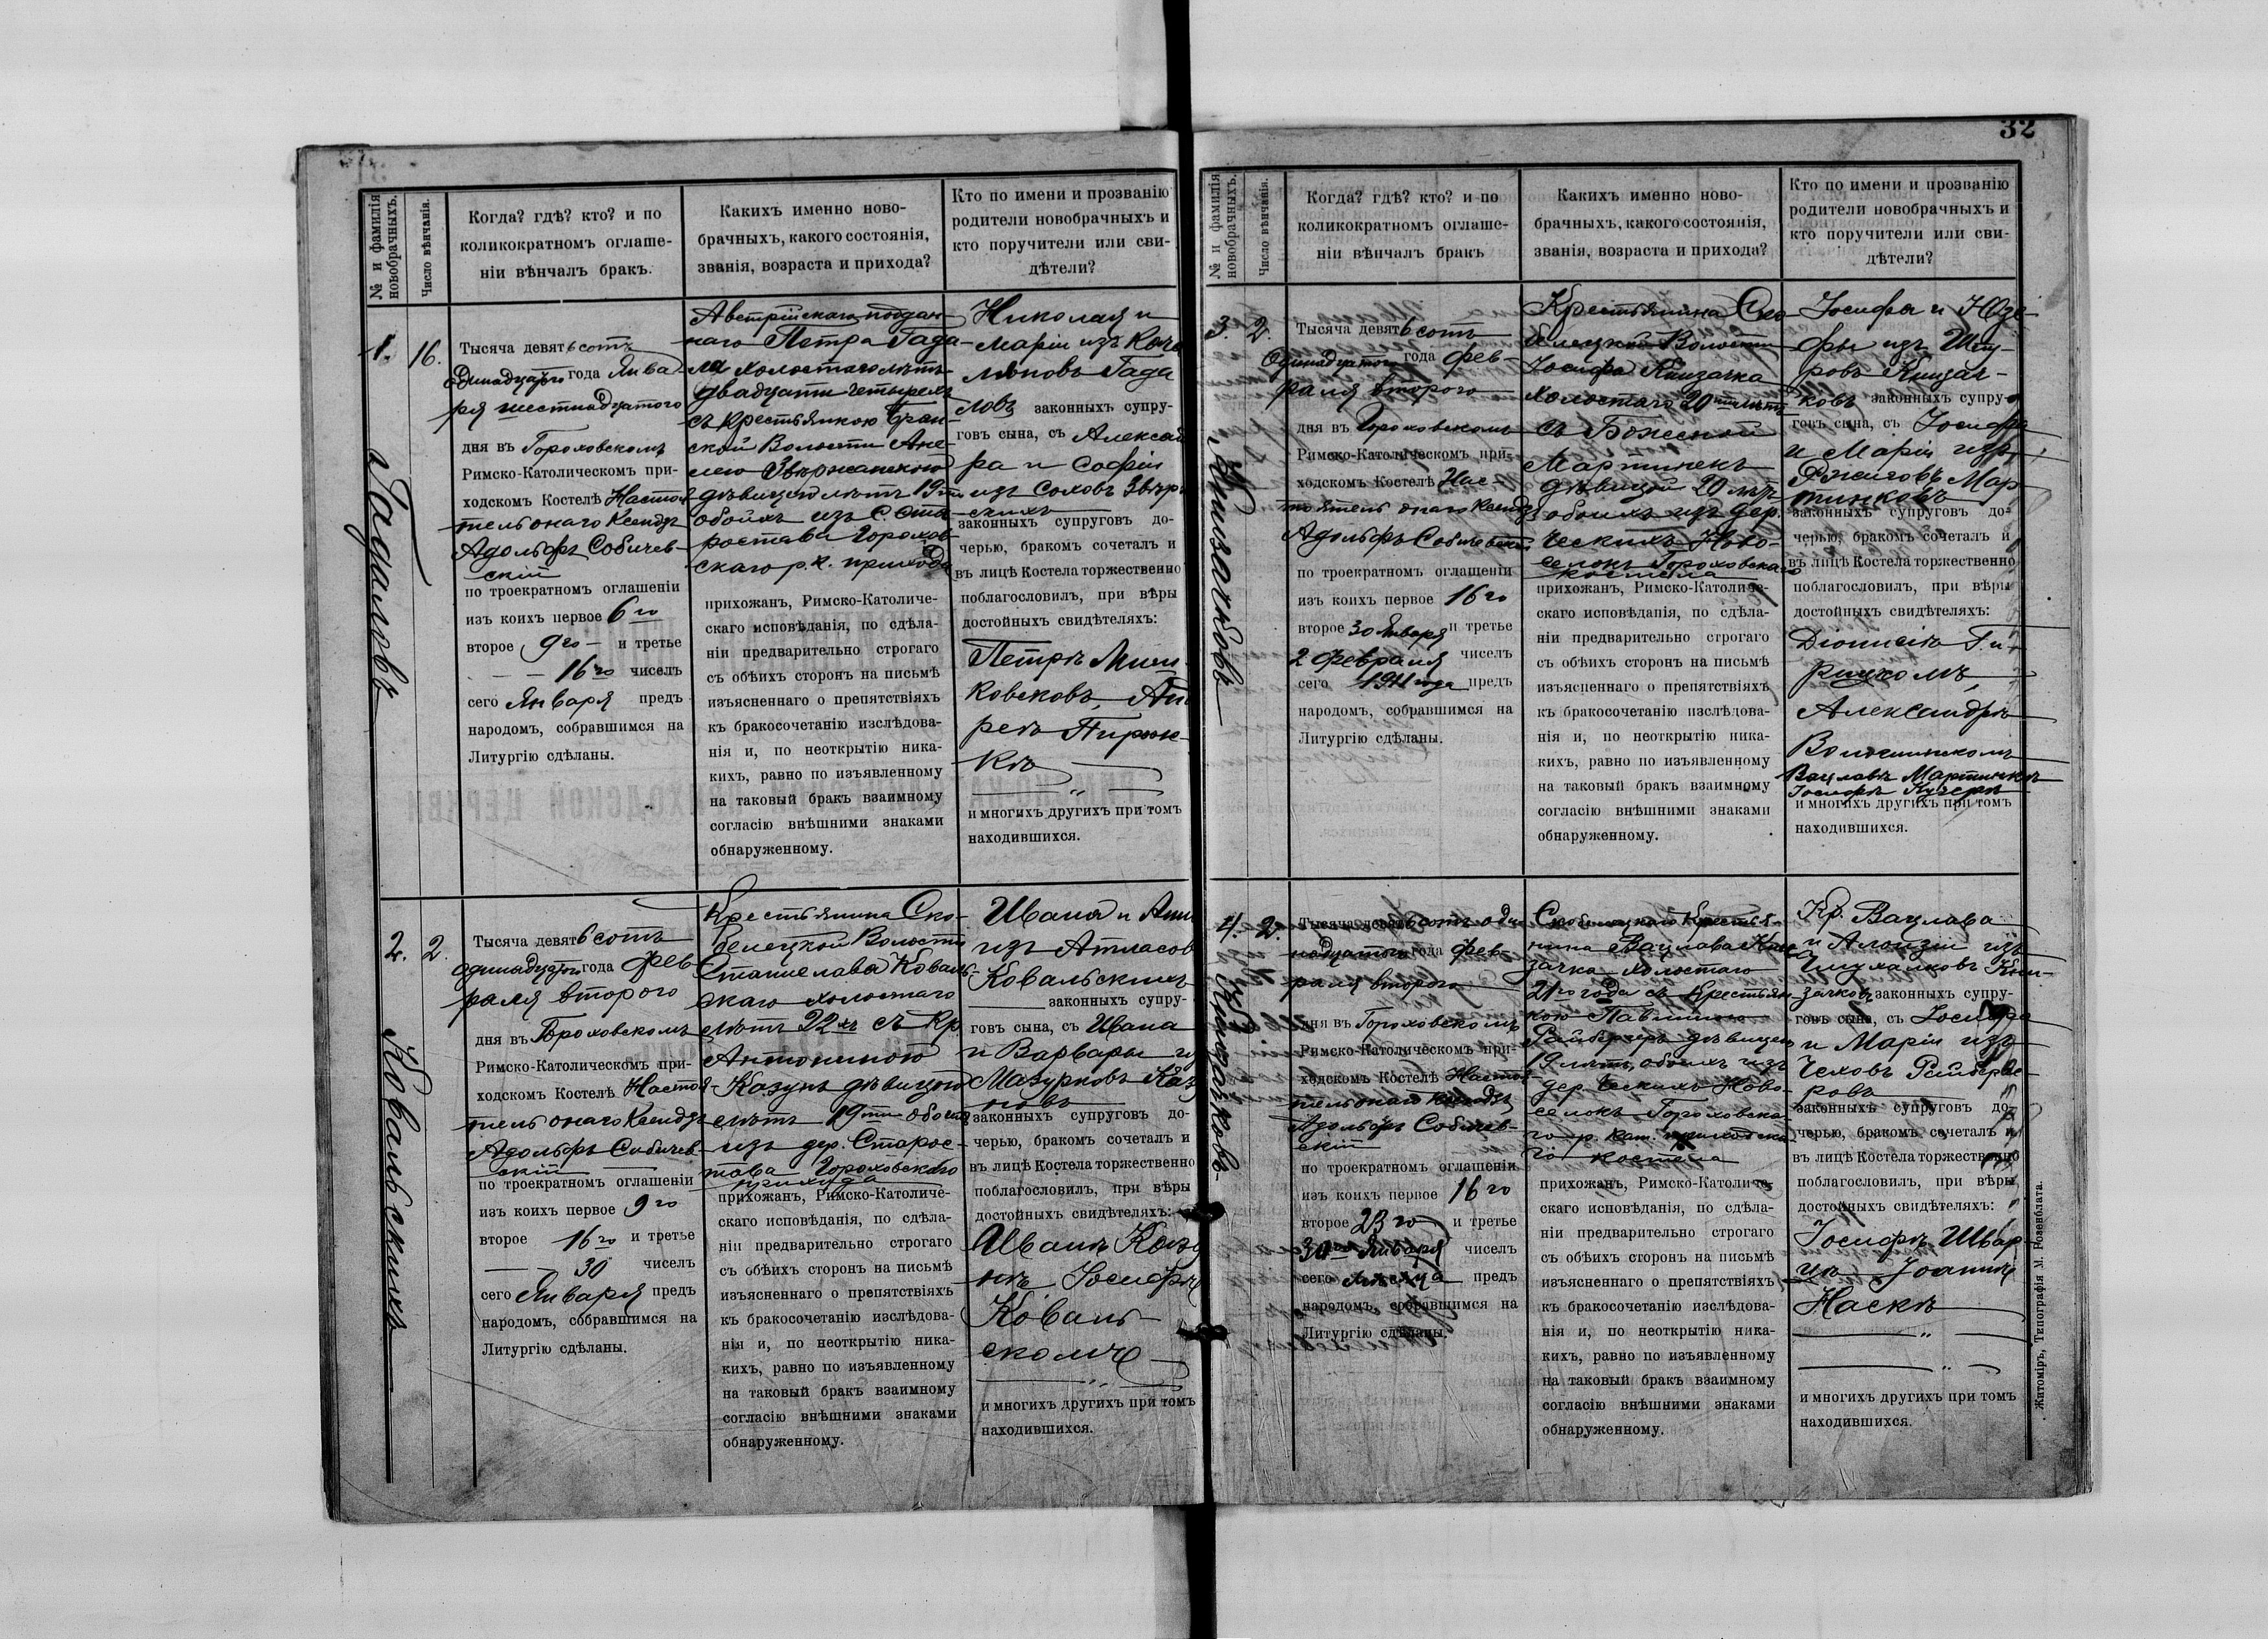 № и фамилія
новобрачныхъ.
Число вѣнчанія.
Когда? гдѣ? кто? и по
коликократномъ оглаше-
ніи вѣнчалъ бракъ.
Какихъ именно ново-
брачныхъ, какого состоянія,
званія, возраста и прихода?
Кто по имени и прозванію
родители новобрачныхъ и
кто поручители или сви-
дѣтели?
1.
Гадаловъ
16.
Тысяча девятьсотъ
одинадцатого года Янва-
ря шестнадцатого
дня въ Гороховскомъ
Римско-Католическомъ при-
ходскомъ Костелѣ Настоя-
тель онаго Ксендзъ
Адольфъ Собичев-
скій
по троекратномъ оглашеніи
изъ коихъ первое 6го
второе 9го и третье
16го чиселъ
сего Января предъ
народомъ, собравшимся на
Литургію сдѣланы.
Австрійскаго поддан-
наго Петра Гада-
ла холостаго лѣтъ
двадцати четырехъ
съ крестьянкою Бран-
ской Волости Ане-
лею
дѣвицею лѣтъ 19ти
обоихъ изъ с. Ста-
ростава Горохов-
скаго р. к. прихода
прихожанъ, Римско-Католиче-
скаго исповѣданія, по сдѣла-
ніи предварительно строгаго
съ обѣихъ сторонъ на письмѣ
изъясненнаго о препятствіяхъ
къ бракосочетанію изслѣдова-
нія и, по неоткрытію ника-
кихъ, равно по изъявленному
на таковый бракъ взаимному
согласію внѣшними знаками
обнаруженному.
Николая и
Маріи изъ
Гада
ловъ законныхъ супру-
говъ сына, съ Алексан
ра и Софіи
изъ
законныхъ супруговъ до-
черью, бракомъ сочеталъ и
въ лицѣ Костела торжественно
поблагословилъ, при вѣры
достойныхъ свидѣтеляхъ:
Петръ

и многихъ другихъ при томъ
находившихся.
2.
Ковальскихъ
2.
Тысяча девятьсотъ
одинадцатого года Фев-
раля второго
дня въ Гороховскомъ
Римско-Католическомъ при-
ходскомъ Костелѣ Настоя-
тель онаго Ксендзъ
Адольфъ Собичев-
скій
по троекратномъ оглашеніи
изъ коихъ первое 9го
второе 16го и третье
30 чиселъ
сего Января предъ
народомъ, собравшимся на
Литургію сдѣланы.
Крестьянина Ско-
белецкой Волости
Станислава Коваль-
скаго холостаго
лѣтъ 22хъ съ кр.
Антониною
Казунъ дѣвицею
лѣтъ 19ти обоихъ
изъ дер. Старос-
тава Гороховскаго
прихода
прихожанъ, Римско-Католиче-
скаго исповѣданія, по сдѣла-
ніи предварительно строгаго
съ обѣихъ сторонъ на письмѣ
изъясненнаго о препятствіяхъ
къ бракосочетанію изслѣдова-
нія и, по неоткрытію ника-
кихъ, равно по изъявленному
на таковый бракъ взаимному
согласію внѣшними знаками
обнаруженному.
Ивана и Анны
изъ Атласов
Ковальскихъ
законныхъ супру-
говъ сына, съ Ивана
и Варвары из
Мазурковъ Каз
новъ
законныхъ супруговъ до-
черью, бракомъ сочеталъ и
въ лицѣ Костела торжественно
поблагословилъ, при вѣры
достойныхъ свидѣтеляхъ:
Иванъ Казу
нъ Іосифъ
Коваль-
скомъ
и многихъ другихъ при томъ
находившихся.
32
№ и фамилія
новобрачныхъ.
Число вѣнчанія.
Когда? гдѣ? кто? и по
коликократномъ оглаше-
ніи вѣнчалъ бракъ
Какихъ именно ново-
брачныхъ, какого состоянія,
званія, возраста и прихода?
Кто по имени и прозванію
родители новобрачныхъ и
кто поручители или сви-
дѣтели?
3.
Книзачковъ
2.
Тысяча девятьсотъ
одинадцатого года фев-
раля второго
дня въ Гороховскомъ
Римско-Католическомъ при-
ходскомъ Костелѣ Нас-
тоятель онаго Ксендзъ
Адольфъ Собичевскій
по троекратномъ оглашеніи
изъ коихъ первое 16го
второе 30 Января и третье
2 февраля чиселъ
сего 1911 года предъ
народомъ, собравшимся на
Литургію сдѣланы.
Крестьянина Ско-
белецкой Волости
Іосифа Книзачка
холостаго 20ти лѣтъ
съ Боженой
Мартинекъ
дѣвицей 20 лѣтъ
обоихъ изъ дер.
Ческихъ Ново-
селокъ Гороховскаго
костела
прихожанъ, Римско-Католиче-
скаго исповѣданія, по сдѣла-
ніи предварительно строгаго
съ обѣихъ сторонъ на письмѣ
изъясненнаго о препятствіяхъ
къ бракосочетанію изслѣдова-
нія и, по неоткрытію ника-
кихъ, равно по изъявленному
на таковый бракъ взаимному
согласію внѣшними знаками
обнаруженному.
Іосифа и Юзе-
фы изъ
Книзач-
ковъ законныхъ супру-
говъ сына, съ Іосифа
и Маріи изъ
Мар
тинковъ
законныхъ супруговъ до-
черью, бракомъ сочеталъ и
въ лицѣ Костела торжественно
поблагословилъ, при вѣры
достойныхъ свидѣтеляхъ:
Діонисій
Александръ
Вацлавъ Мартинекъ
Іосифъ Кучера
и многихъ другихъ при томъ
находившихся.
4.
Книзачковъ
2.
Тысяча девятьсотъ оди
надцатого года фев-
раля второго
дня въ Гороховскомъ
Римско-Католическомъ при-
ходскомъ Костелѣ Настоя-
тель онаго Ксендзъ
Адольфъ Собичев-
скій
по троекратномъ оглашеніи
изъ коихъ первое 16го
второе 23го и третье
30го Января чиселъ
сего мѣсяца предъ
народомъ, собравшимся на
Литургію сдѣланы.
Крестья-
нина Вацлава Кни
зачка холостаго
21го года съ крестьян
кою Павлиною
дѣвицею
19 лѣтъ, обоихъ изъ
дер. Ческихъ Ново-
селокъ Гороховска-
го р. кат. приходска
го костела
прихожанъ, Римско-Католиче-
скаго исповѣданія, по сдѣла-
ніи предварительно строгаго
съ обѣихъ сторонъ на письмѣ
изъясненнаго о препятствіяхъ
къ бракосочетанію изслѣдова-
нія и, по неоткрытію ника-
кихъ, равно по изъявленному
на таковый бракъ взаимному
согласію внѣшними знаками
обнаруженному.
Кр. Вацлава
и Алоизіи изъ
Кни-
зачковъ законныхъ супру-
говъ сына, съ Іосифа
и Маріи изъ
Чеховъ
ровъ
законныхъ супруговъ до-
черью, бракомъ сочеталъ и
въ лицѣ Костела торжественно
поблагословилъ, при вѣры
достойныхъ свидѣтеляхъ:
Іосифъ Швар-
цъ Іоаннъ
Наскъ
и многихъ другихъ при томъ
находившихся.
Житоміръ, Типографія М. Розенблата.